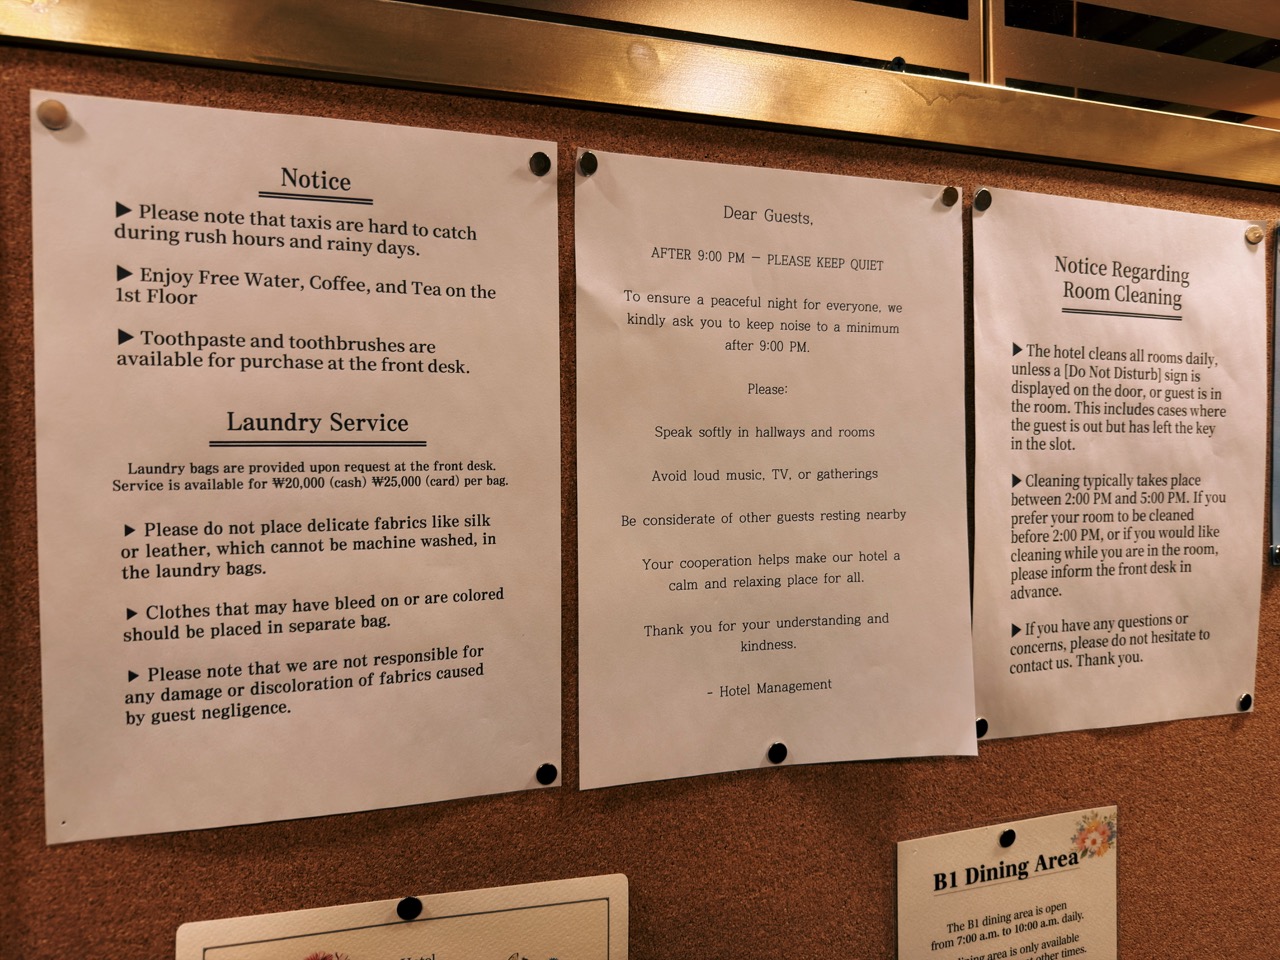 Notice
▶ Please note that taxis are hard to catch
during rush hours and rainy days.
▶ Enjoy Free Water, Coffee, and Tea on the
1st Floor
▶ Toothpaste and toothbrushes are
available for purchase at the front desk.
Laundry Service
Laundry bags are provided upon request at the front desk.
Service is available for ₩20,000 (cash) ₩25,000 (card) per bag.
▶ Please do not place delicate fabrics like silk
or leather, which cannot be machine washed, in
the laundry bags.
▶ Clothes that may have bleed on or are colored
should be placed in separate bag.
▶ Please note that we are not responsible for
any damage or discoloration of fabrics caused
by guest negligence.
Dear Guests,
AFTER 9:00 PM — PLEASE KEEP QUIET
To ensure a peaceful night for everyone, we
kindly ask you to keep noise to a minimum
after 9:00 PM.
Please:
Speak softly in hallways and rooms
Avoid loud music, TV, or gatherings
Be considerate of other guests resting nearby
Your cooperation helps make our hotel a
calm and relaxing place for all.
Thank you for your understanding and
kindness.
- Hotel Management
Notice Regarding
Room Cleaning
▶ The hotel cleans all rooms daily,
unless a [Do Not Disturb] sign is
displayed on the door, or guest is in
the room. This includes cases where
the guest is out but has left the key
in the slot.
▶ Cleaning typically takes place
between 2:00 PM and 5:00 PM. If you
prefer your room to be cleaned
before 2:00 PM, or if you would like
cleaning while you are in the room,
please inform the front desk in
advance.
▶ If you have any questions or
concerns, please do not hesitate to
contact us. Thank you.
B1 Dining Area
The B1 dining area is open
from 7:00 a.m. to 10:00 a.m. daily.
dining area is only available
other times.
Hotel